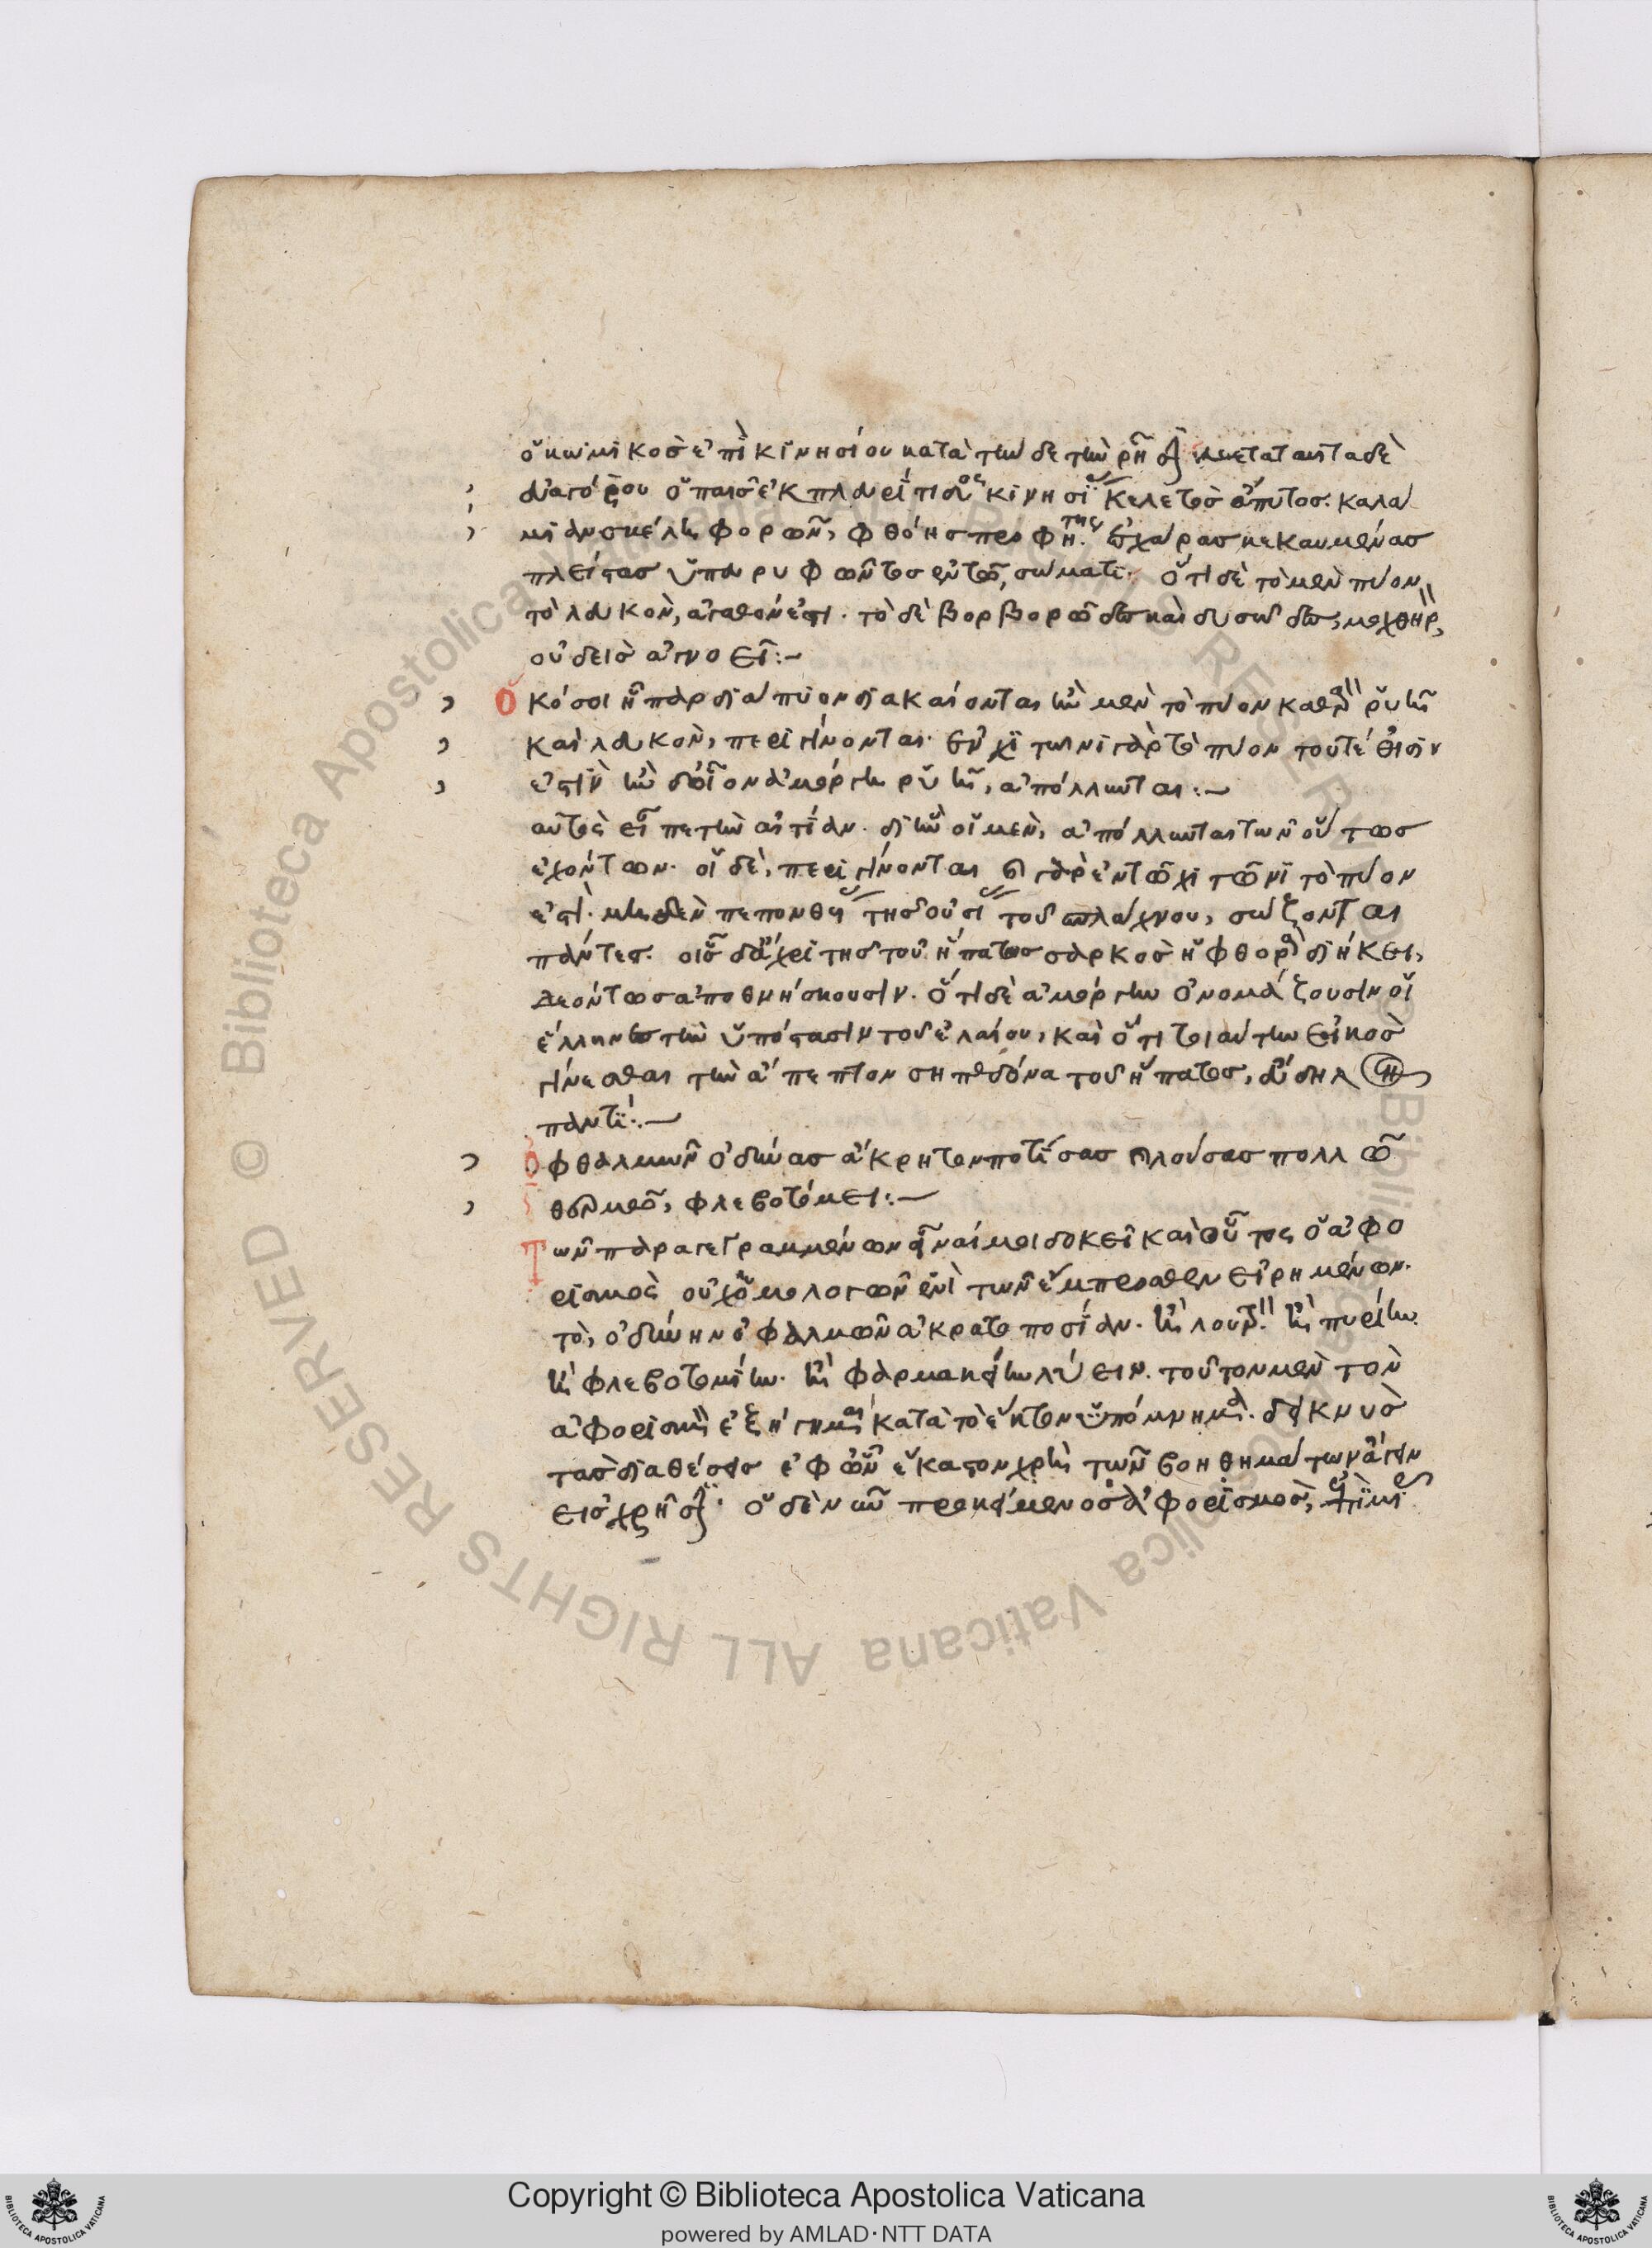 ὁ κωμικὸς ἐπὶ κινησίου κατὰ τήνδε τὴν ῥῆσιν μετὰ ταῦτα δὲ
διαγόρου ὁ παῖς ἐκ πλευρίτιδος κινησίου σκελετὸς ἄπυγος. καλά
μινα σκέλη φορῶν, φθόης προφήτης ἐσχάρας κεκαυμένας
πλείστας ὑπ' εὐρυφῶντος ἐν τῷ σώματι. ὅτι δὲ τὸ μὲν πύον
τὸ λευκὸν, ἀγαθόν ἐστι. τὸ δὲ βορβορῶδες καὶ δυσῶδες, μοχθηρὸν
οὐδεὶς ἀγνοεῖ:-
Ὁκόσοι ἧπαρ διάπυον διακαίονται ἢν μὲν τὸ πύον καθαρὸν ῥυῇ
καὶ λευκὸν, περιγίνονται. ἐν χιτῶνι γὰρ τὸ πύον τουτέοισιν
ἐστὶν ἢν δὲ οἷον ἀμόργη ῥυῇ, ἀπόλλυνται:-
αὐτὸς εἶπε τὴν αἰτίαν. δι' ἣν οἱ μὲν, ἀπόλλυνται τῶν οὕτως
ἐχόντων. οἱ δὲ, περιγίνονται εἰ γὰρ ἐν τῷ χιτῶνι τὸ πύον
ἐστὶ. μηδὲν πεπονθυίας τῆς οὐσίας τοῦ σπλάγχνου, σώζονται
πάντες. οἷς δ' ἄχρι τῆς τοῦ ἥπατος σαρκὸς ἡ φθορὰ διήκει,
δεόντως ἀποθνήσκουσιν. ὅτι δὲ ἀμόργην ὀνομάζουσιν οἱ
ἕλληνες τὴν ὑπόστασιν τοῦ ἐλαίου, καὶ ὅτι τοιαύτην εἰκὸς
γίνεσθαι τὴν ἄπεπτον σηπεδόνα τοῦ ἥπατος, εὔδηλον
παντί:-
Ὀφθαλμῶν ὀδύνας ἄκρητον ποτίσας ἢ λούσας πολλῷ
θερμῷ, φλεβοτόμει:-
Τῶν παραγεγραμμένων εἶναί μοι δοκεῖ καὶ οὗτος ὁ ἀφο
ρισμὸς οὐχ ὁμολογῶν ἑνὶ τῶν ἔμπροσθεν εἰρημένων.
τὸ, ὀδύνην ὀφθαλμῶν ἀκρατοποσίαν. ἢ λουτρὸν. ἢ πυρίην.
ἢ φλεβοτομίην. ἢ φαρμακείην λύειν. τοῦτον μὲν τὸν
ἀφορισμὸν ἐξήγημαι κατὰ τὸ ἕκτον ὑπόμνημα. δεικνὺς
τὰς διαθέσεις ἐφ' ὧν ἕκαστον χρὴ τῶν βοηθημάτων ἄγειν
εἰς χρῆσιν. ὁ δὲ νῦν προκείμενος ἀφορισμὸς,